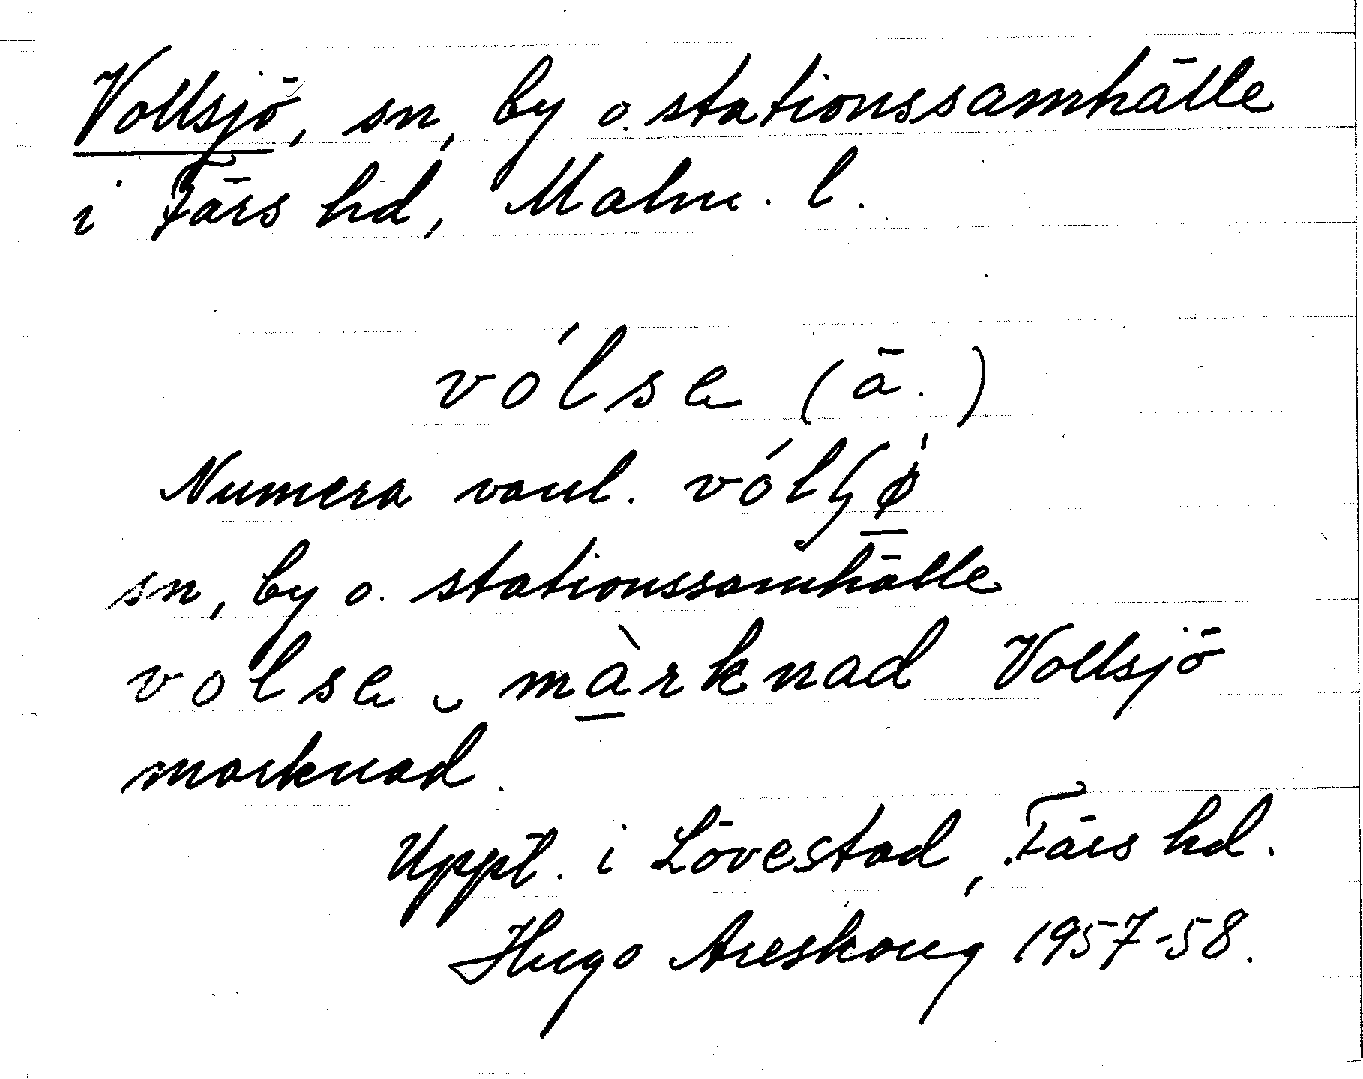 Vollsjö, sn, by o. stationssamhälle
i Färs hd, Malm. l.
vólsa (ä.)
Numera vanl. vólʃø̀
sn, by o. stationssamhälle
volsa ‿ màrknad Vollsjö
marknad.
Uppt. i Lövestad, Färs hd.
Hugo Areskoug 1957-58.